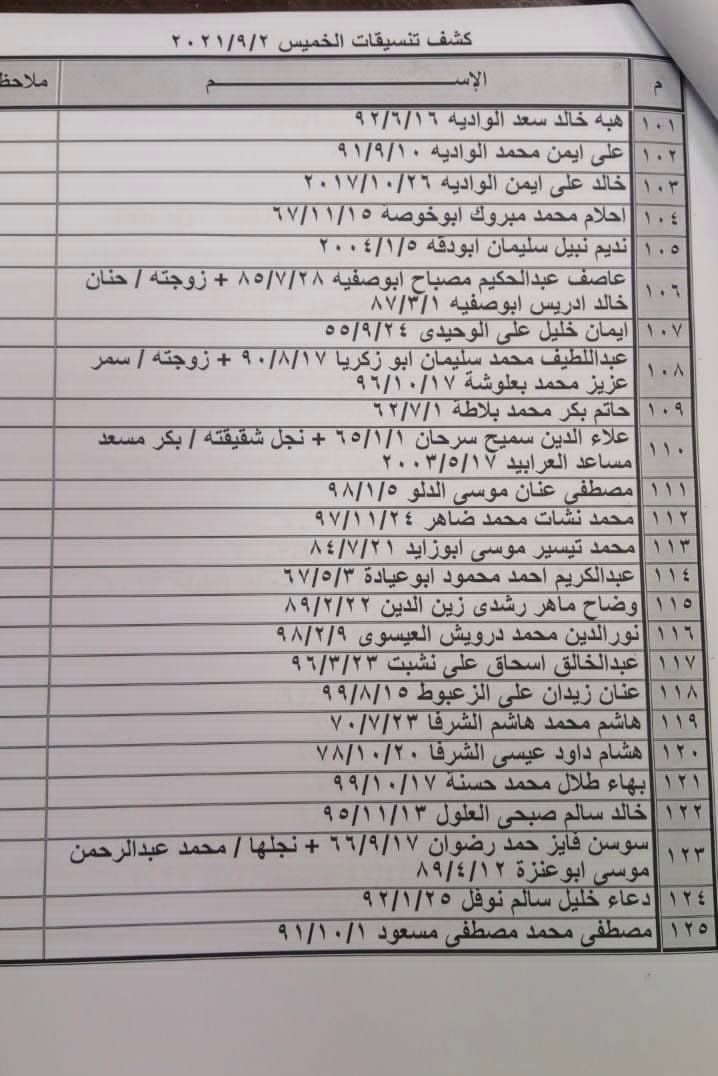 كشف تنسيقات الخميس ٢٠٢١/٩/٢
م الإســـــــــــــم
١٠١ هبه خالد سعد الواديه ٩٢/٦/١٦
١٠٢ على ايمن محمد الواديه ٩١/٩/١٠
١٠٣ خالد على ايمن الواديه ٢٠١٧/١٠/٢٦
١٠٤ احلام محمد مبروك ابوخوصة ٦٧/١١/١٥
١٠٥ نديم نبيل سليمان ابودقه ٢٠٠٤/١/٥
١٠٦ عاصف عبدالحكيم مصباح ابوصفيه ٨٥/٧/٢٨ + زوجته / حنان
خالد ادريس ابوصفيه ٨٧/٣/١
١٠٧ ايمان خليل على الوحيدى ٥٥/٩/٢٤
١٠٨ عبداللطيف محمد سليمان ابو زكريا ٩٠/٨/١٧ + زوجته / سمر
عزيز محمد بعلوشة ٩٦/١٠/١٧
١٠٩ حاتم بكر محمد بلاطة ٦٢/٧/١
١١٠ علاء الدين سميح سرحان ٦٥/١/١ + نجل شقيقته / بكر مسعد
مساعد العرابيد ٢٠٠٣/٥/١٧
١١١ مصطفى عنان موسى الدلو ٩٨/١/٥
١١٢ محمد نشات محمد ضاهر ٩٧/١١/٢٤
١١٣ محمد تيسير موسى ابوزايد ٨٤/٧/٢١
١١٤ عبدالكريم احمد محمود ابوعيادة ٦٧/٥/٣
١١٥ وضاح ماهر رشدى زين الدين ٨٩/٢/٢٢
١١٦ نورالدين محمد درويش العيسوى ٩٨/٢/٩
١١٧ عبدالخالق اسحاق على نشبت ٩٦/٣/٢٣
١١٨ عنان زيدان على الزعبوط ٩٩/٨/١٥
١١٩ هاشم محمد هاشم الشرفا ٧٠/٧/٢٣
١٢٠ هشام داود عيسى الشرفا ٧٨/١٠/٢٠
١٢١ بهاء طلال محمد حسنة ٩٩/١٠/١٧
١٢٢ خالد سالم صبحى العلول ٩٥/١١/١٣
١٢٣ سوسن فايز حمد رضوان ٦٦/٩/١٧ + نجلها / محمد عبدالرحمن
موسى ابوعنزة ٨٩/٤/١٢
١٢٤ دعاء خليل سالم نوفل ٩٢/١/٢٥
١٢٥ مصطفى محمد مصطفى مسعود ٩١/١٠/١